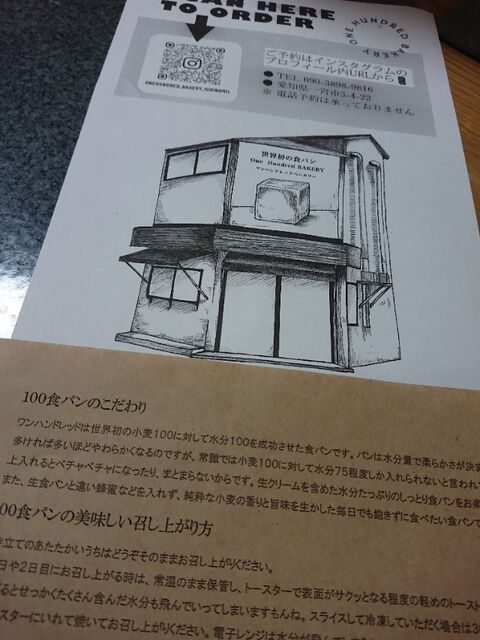 AN HERE
TO ORDER
ONE HUNDRED BAKERY
ONEHUNDRED.BAKERY.ICHINOMIYA
ご予約はインスタグラムの
プロフィール内URLから
● TEL 090-3898-9816
● 愛知県一宮市3-4-22
※ 電話予約は承っておりません
世界初の食パン
One Hundred BAKERY
ワンハンドレッドベーカリー
100食パンのこだわり
ワンハンドレッドは世界初の小麦100に対して水分100を成功させた食パンです。パンは水分量で柔らかさが決ま
多ければ多いほどやわらかくなるのですが、常識では小麦100に対して水分75程度しか入れられないと言われて
上入れるとベチャベチャになったり、まとまらないからです。生クリームを含めた水分たっぷりのしっとり食パンをお楽
また、生食パンと違い蜂蜜などを入れず、純粋な小麦の香りと旨味を生かした毎日でも飽きずに食べたい食パンで
00食パンの美味しい召し上がり方
立てのあたたかいうちはどうぞそのままお召し上がりください。
日や2日目にお召し上がる時は、常温のまま保管し、トースターで表面がサクッとなる程度の軽めのトースト
るとせっかくたくさん含んだ水分も飛んでいってしまいますもんね。スライスして冷凍していただく場合は3
スターにいれて焼いてお召し上がりください。電子レンジは水分が